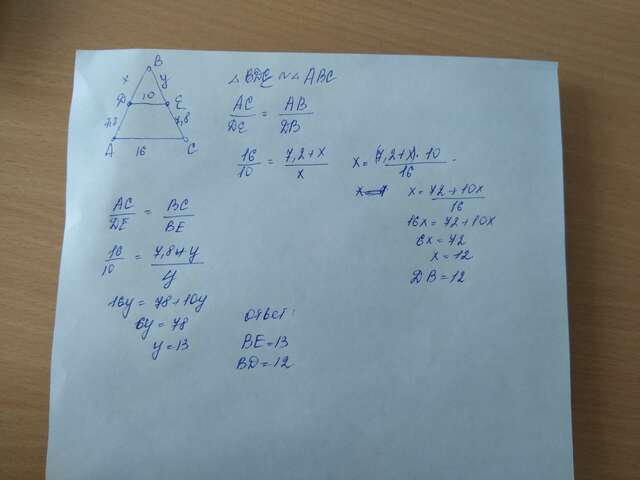 B
x y
D 10 E
7,2 7,8
A 16 C
△BDE ∾ △ABC
AC/DE = AB/DB
16/10 = (7,2+x)/x
x = (7,2+x)·10/16
x = (72+10x)/16
16x = 72+10x
6x = 72
x = 12
DB = 12
AC/DE = BC/BE
16/10 = (7,8+y)/y
16y = 78+10y
6y = 78
y = 13
Ответ:
BE = 13
BD = 12